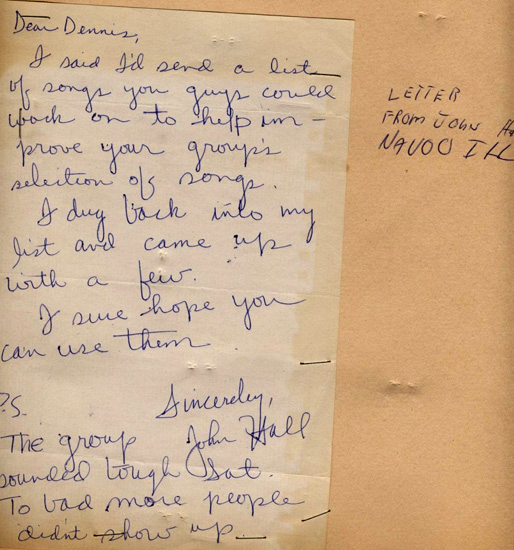 Dear Dennis,
I said I'd send a list
of songs you guys could
work on to help im-
prove your group's
selection of songs.
I dug back into my
list and came up
with a few.
I sure hope you
can use them
Sincereley,
John Hall
P.S.
The group
sounded tough Sat.
To bad more people
didn't show up
LETTER
FROM JOHN
NAVOO ILL